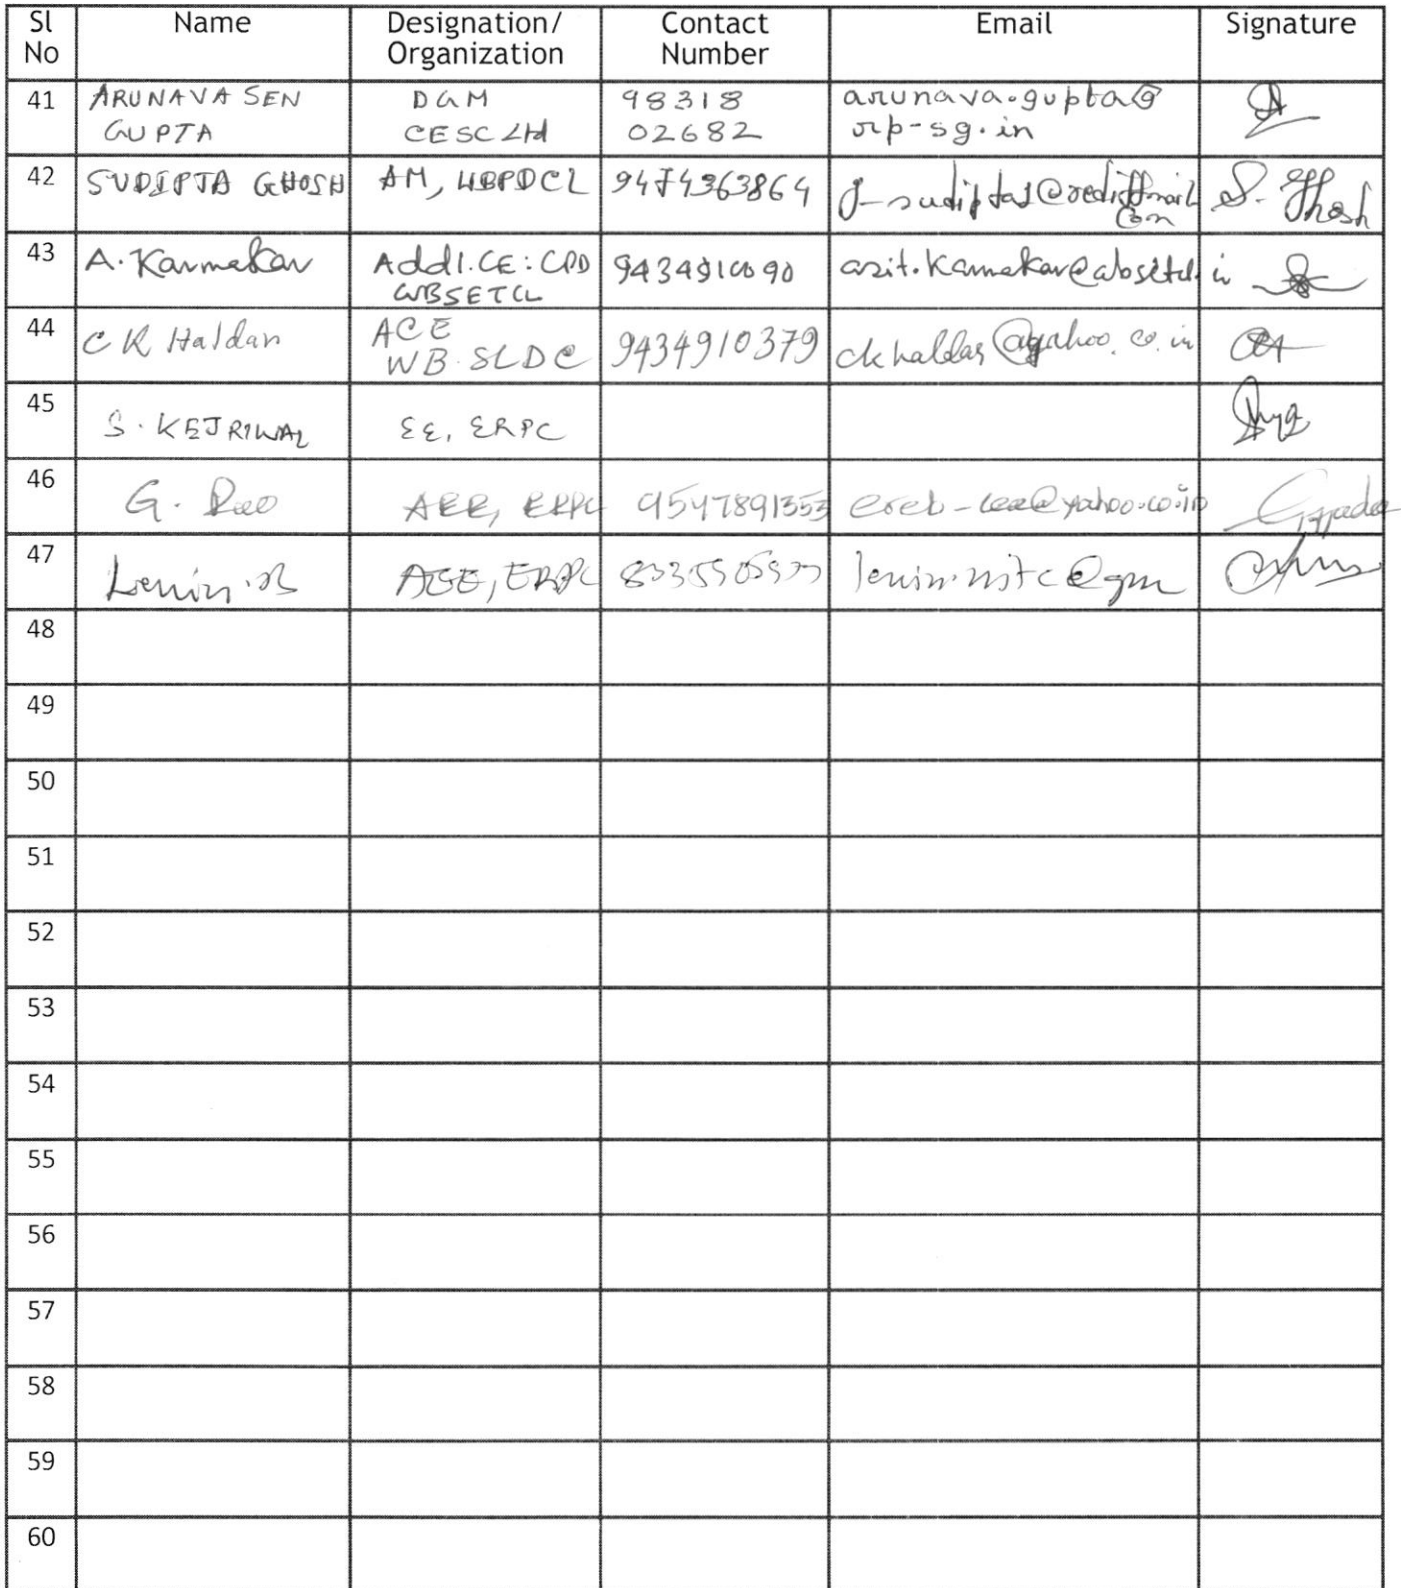 Sl No Name Designation/ Organization Contact Number Email Signature
41 ARUNAVA SEN DGM 98318 arunava.gupta@
GUPTA CESC Ltd 02682 rp-sg.in
42 SUDIPTA GHOSH AM, WBPDCL 9474363864 g-sudipta1@rediffmail S. Ghosh
com
43 A. Karmakar Addl. CE: CPD 9434910090 asit.karmakar@wbsetcl.in
WBSETCL
44 CK Haldar ACE 9434910379 ckhaldar@yahoo.co.in
WB SLDC
45 S. KEJRIWAL EE, ERPC
46 G. Rao AEE, ERPC 9547891353 ereb-cea@yahoo.co.in
47 Lenin. B AEE, ERPC lenin.nitc@gm
48
49
50
51
52
53
54
55
56
57
58
59
60